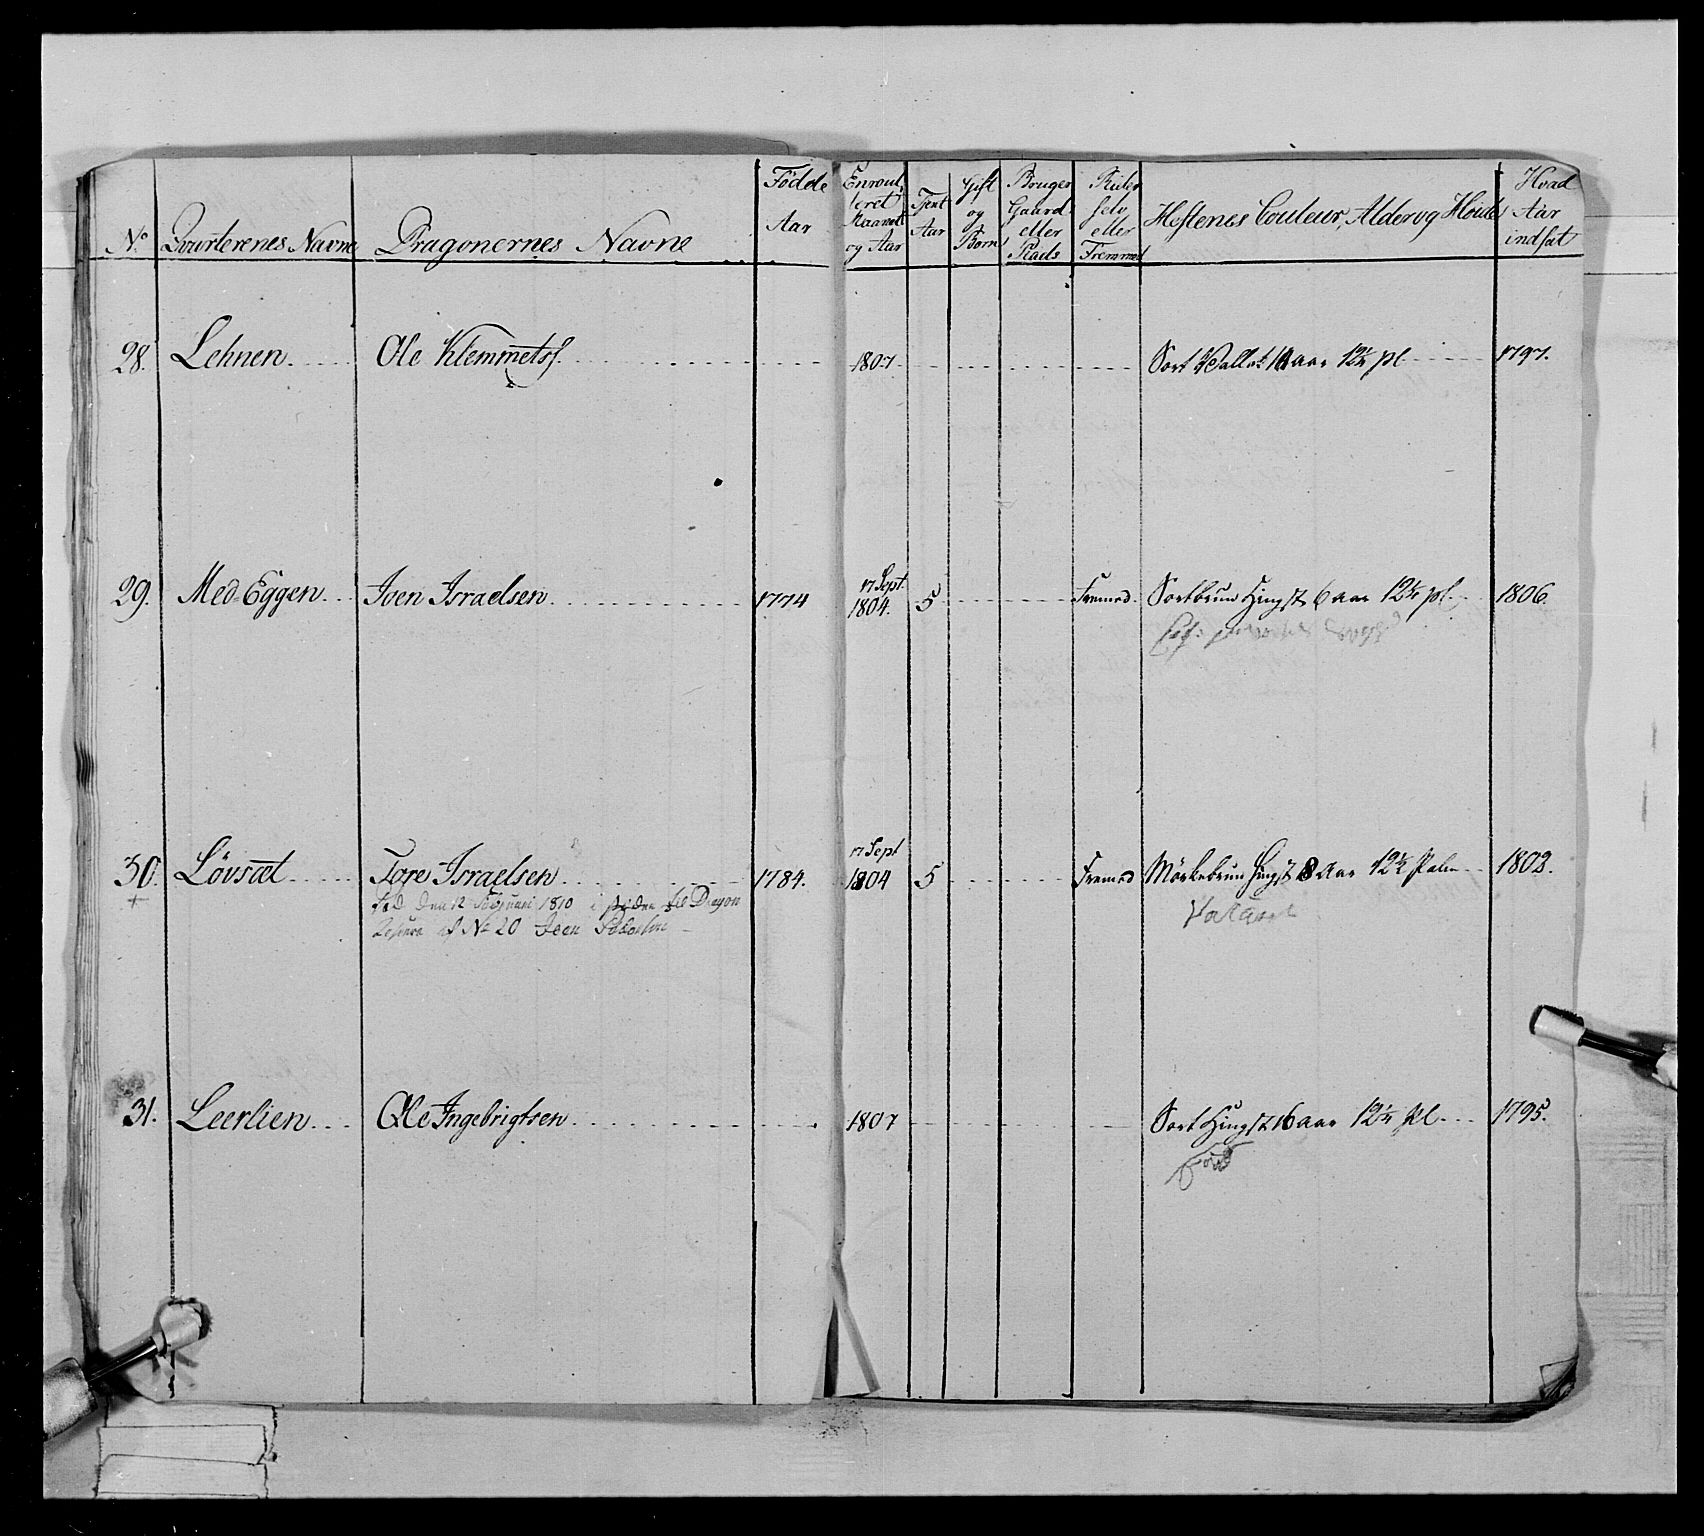 No Qvarterenes Navne Dragonernes Navne Fødde Aar Enroulleret Maaned og Aar Tjent Aar Gift og Børn Bruger Gaard eller Plads Rider selv eller Fremmed Hestenes Couleur, Alder og Høide Hvad Aar indsat
28. Lehnen Ole Klemmetsf. 1807 Sort Vallak aar 12½ pl 1797.
29. Med-Eggen Iven Israelsen 1774 17 Sept. 1804. 5 Fremed. Sortbrun Hingst 6 aar 12½ pl. 1806.
30. Lövsæt Tore Israelsen 1784. 17 Sept 1804 5 Fremed Mörkebrun Hingst 8 Aar 12½ Palm 1802.
+ død den 12 1810 i til Dragon Vakant
af No 20
31. Leerlien Ole Ingebrigtsen 1807 Sort Hingst 16 aar 12½ pl. 1795.